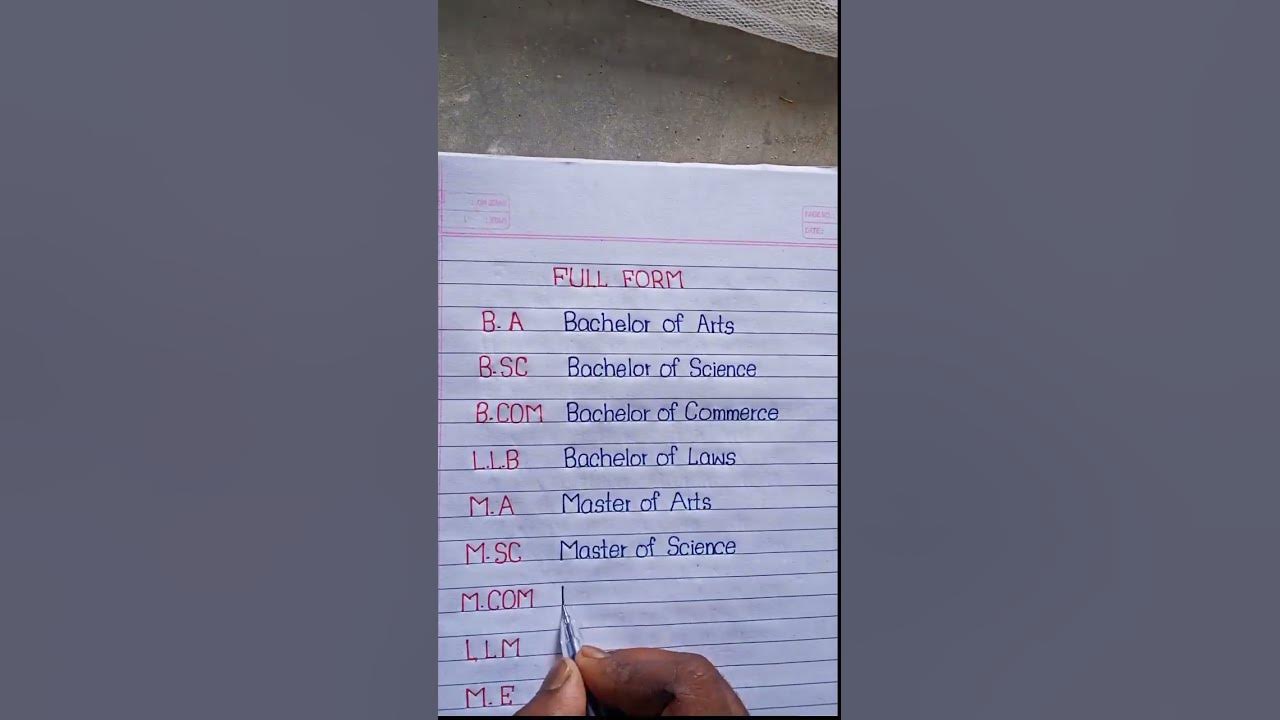 PAGE NO.
DATE:
FULL FORM
B.A Bachelor of Arts
B.SC Bachelor of Science
B.COM Bachelor of Commerce
L.L.B Bachelor of Laws
M.A Master of Arts
M.SC Master of Science
M.COM
L.L.M
M.E